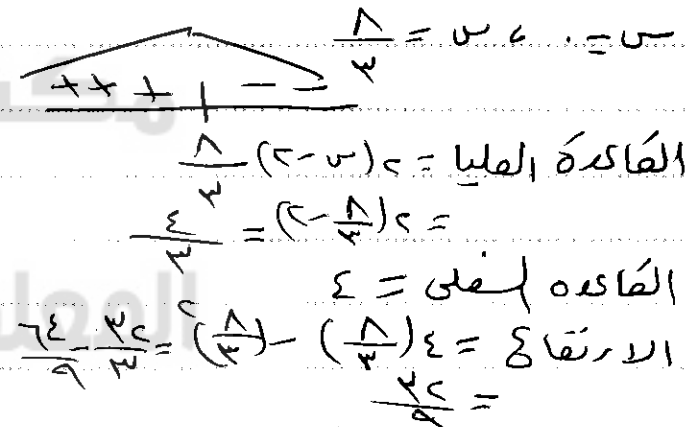 س = ٠ ، س = ٨/٣
+ + + | - -
القاعدة العليا = ٢(س-٢) ٨/٣
= ٢(٨/٣ - ٢) = ٤/٣
القاعده السفلى = ٤
الارتفاع = ٤(٨/٣) - (٨/٣)^٢ = ٣٢/٣ - ٦٤/٩
= ٣٢/٩